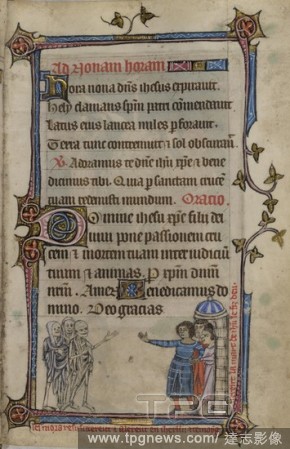 Ad Nonam horam
Hora nona dñs ihesus expirauit.
Hely clamans spm patri cōmendauit.
Latus eius lancea miles perforauit.
Terra tunc contremuit et sol obscurauit.
Adoramus te dñe ihu xpe et bene
dicimus tibi. Quia per sanctam crucē
tuam redemisti mundum. Oratio.
Domine ihesu xpe filii dei
uiui pone passionem cru
cem et mortem tuam inter iudicium
tuum et animas. P xpm dnm
nrm. Amen. Benedicamus do
mino. Deo gracias
TPG
www.tpgnews.com / 達志影像